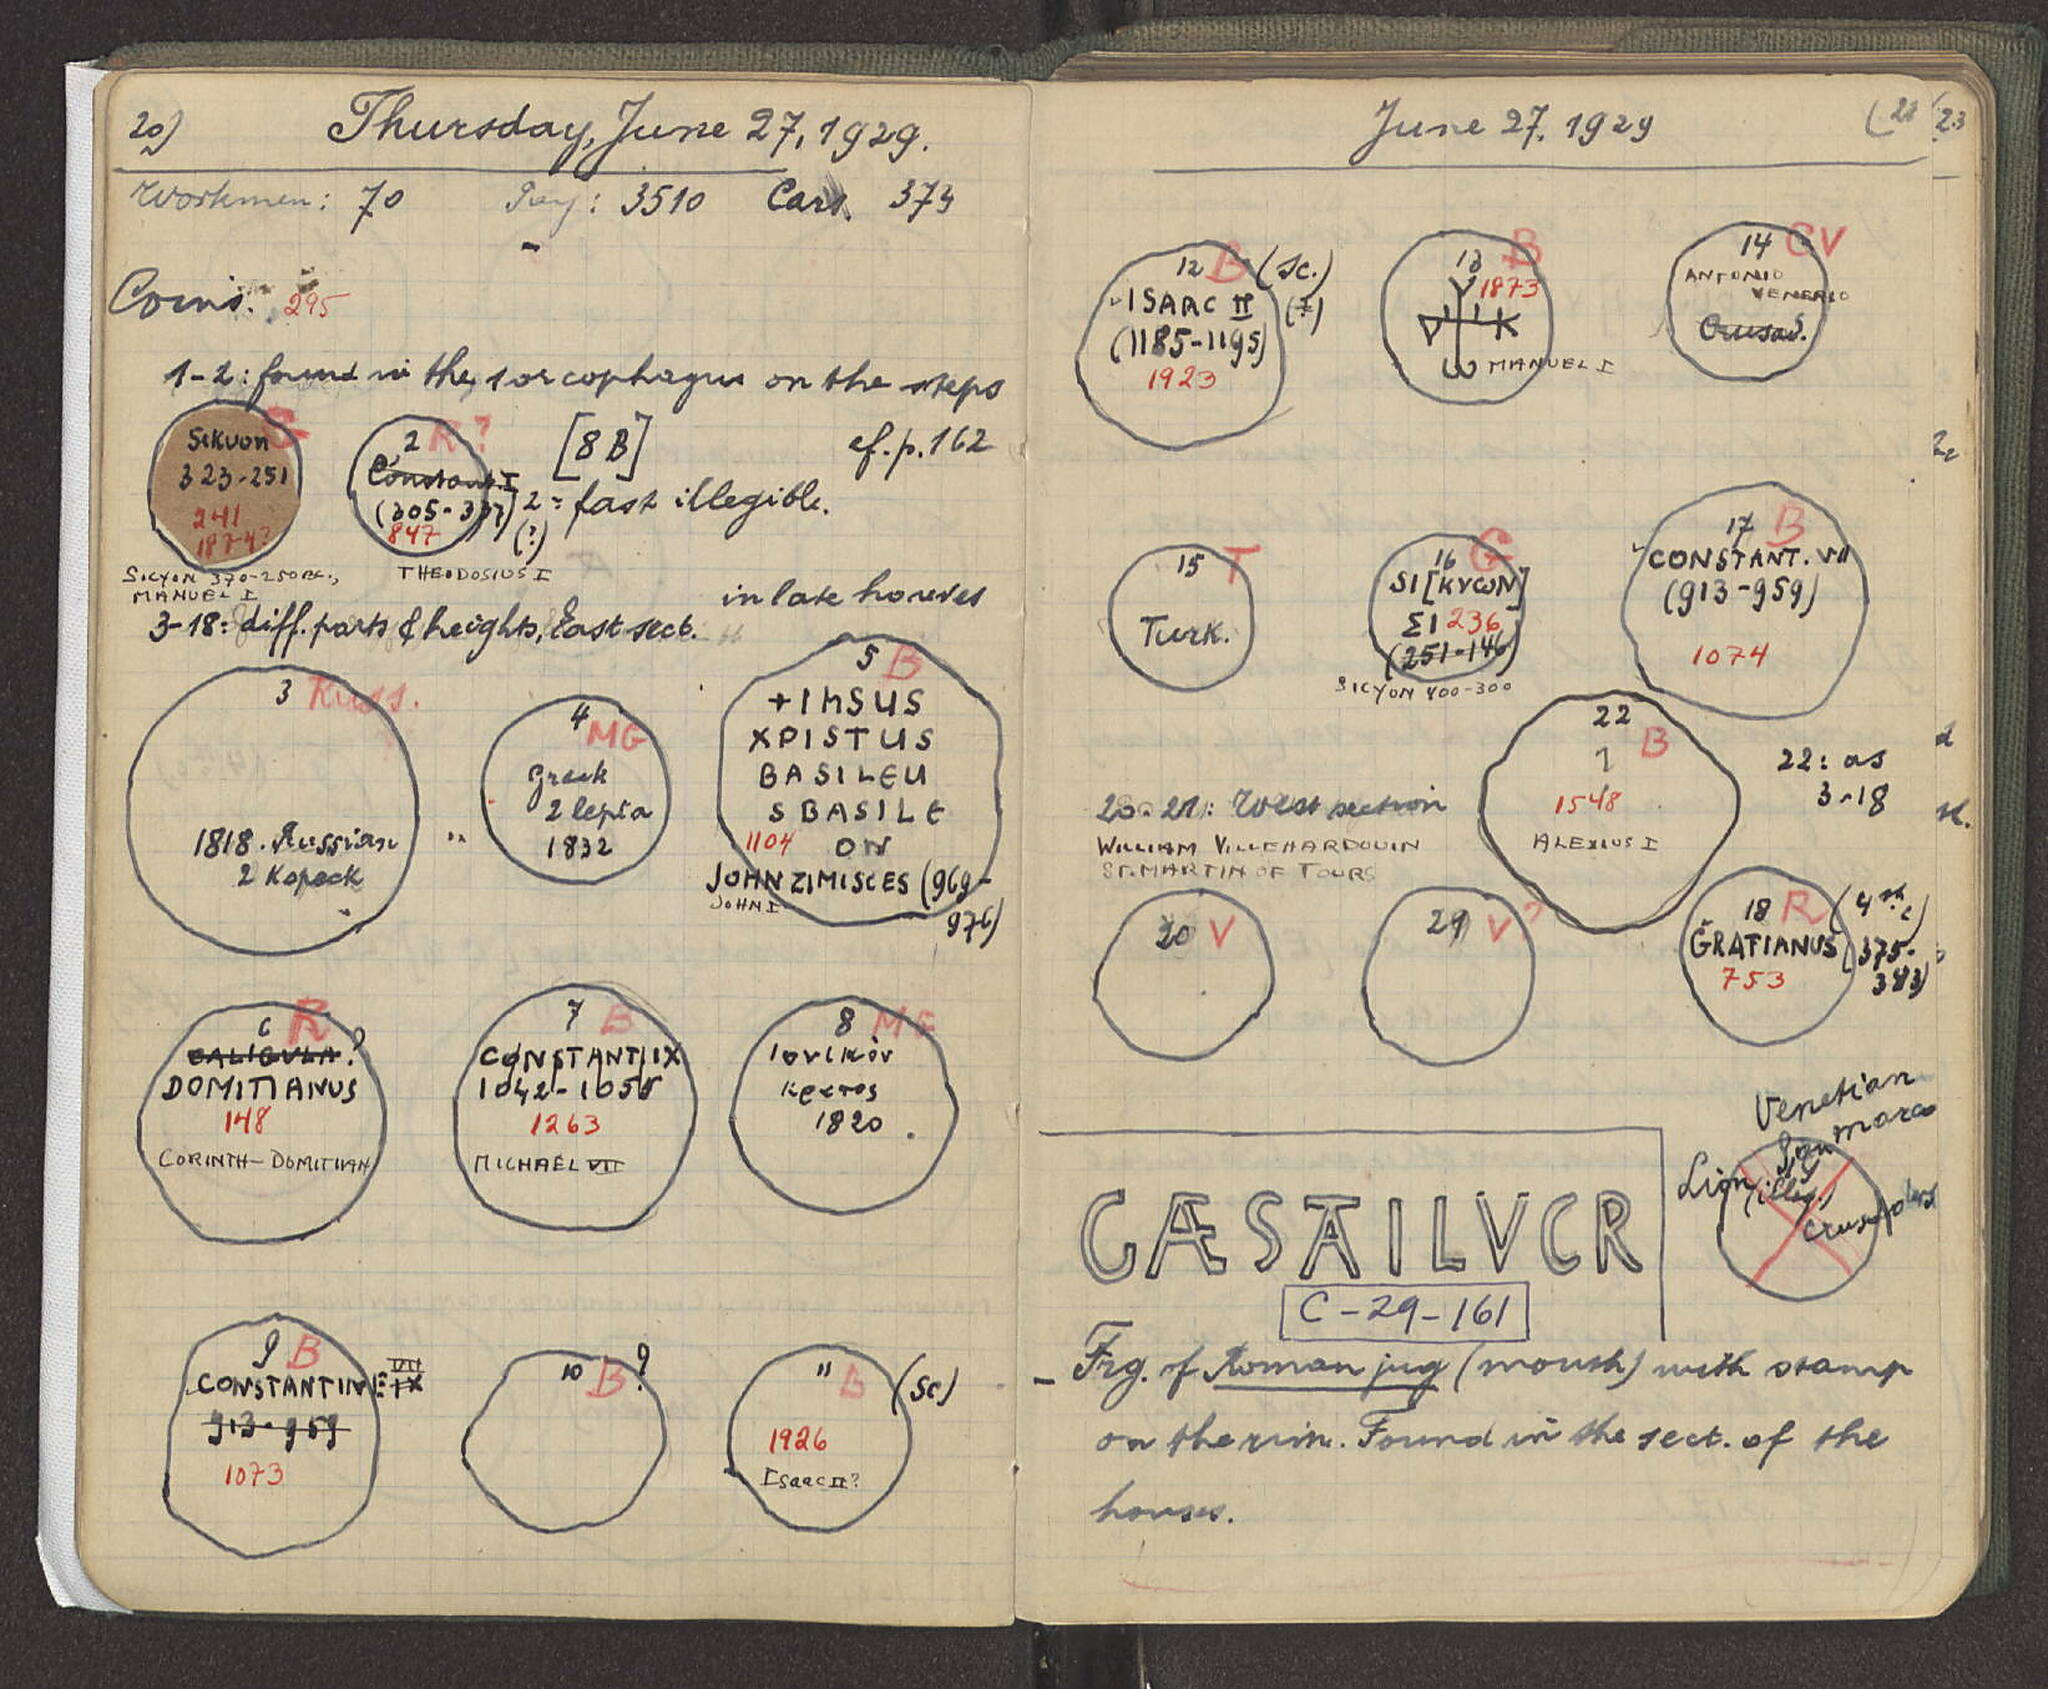 20)
Thursday, June 27, 1929.
Workmen: 70 Pay: 3510 Cars. 373
Coins. 295
1-2: found in the sarcophagus on the steps
Sikyon G
323-251
241
1874?
SICYON 370-250 BC.,
MANUEL I
2 R?
Constant. I
(305-337)
(?)
847
THEODOSIUS I
[8 B]
cf. p. 162
2 = fast illegible.
in late houses
3-18: diff. parts & heights, East sect.
3 Russ.
1818. Russian
2 Kopeck
4 MG
Greek
2 lepta
1832
5 B
+IhSUS
XPISTUS
BASILEU
S BASILE
1104 ON
JOHN ZIMISCES (969-
976)
JOHN I
6 R
CALIGULA ?
DOMITIANUS
148
CORINTH-DOMITIAN
7 B
CONSTANT IX
1042-1055
1263
MICHAEL VII
8 MG
Ιονικὸν
κράτος
1820
9 B
CONSTANTINE VII
IX
913-959
1073
10 B ?
11 B (Sc)
1926
Isaac II?
June 27, 1929
(21 (23
12 B (Sc.)
ISAAC II (?)
(1185-1195)
1923
13 B
1873
MANUEL I
14 CV
ANTONIO
VENERIO
Crusad.
15 T
Turk.
16 G
SI[ΚΥΩΝ]
ΣΙ 236
(251-146)
SICYON 400-300
17 B
CONSTANT. VII
(913-959)
1074
22 B
1
1548
ALEXIUS I
22: as
3-18
20-21: West section
WILLIAM VILLEHARDOUIN
ST. MARTIN OF TOURS
20 V
21 V?
18 R (4th c)
GRATIANUS (375-
383)
753
Venetian
San marco
Lion
(illeg.)
Crusaders
CÆSAILVCR
C-29-161
- Frg. of Roman jug (mouth) with stamp
on the rim. Found in the sect. of the
houses.